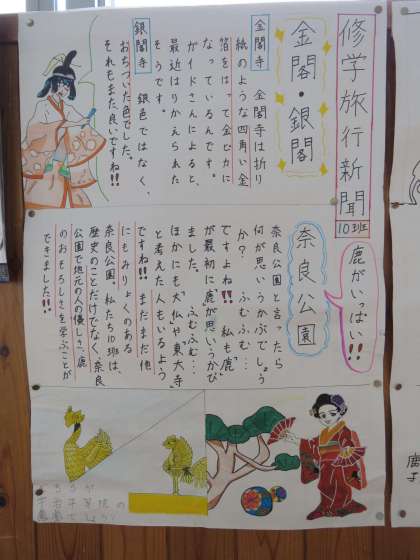 修学旅行新聞
10班
金閣・銀閣
金閣寺 金閣寺は折り
紙のような四角い金
箔をはって金ピカに
なっているんです。
ガイドさんによると、
最近はりかえられた
そうです。
銀閣寺 銀色ではなく、
おちついた色でした。
それもまた良いですね!!
鹿がいっぱい!!
奈良公園
奈良公園と言ったら
何が思いうかぶでしょう
か? ふむふむ…
ですよね!! 私も「鹿」
が最初に思いうかび
ました。 ふむふむ…
ほかにも「大仏」や「東大寺」
と考えた人もいるよう
ですね!! まだまだ他
にもみりょくのある
奈良公園。私たち10班は、
歴史のことだけでなく、奈良
公園で地元の人の優しさ、鹿
のおもしろしさを学ぶことが
できました!!